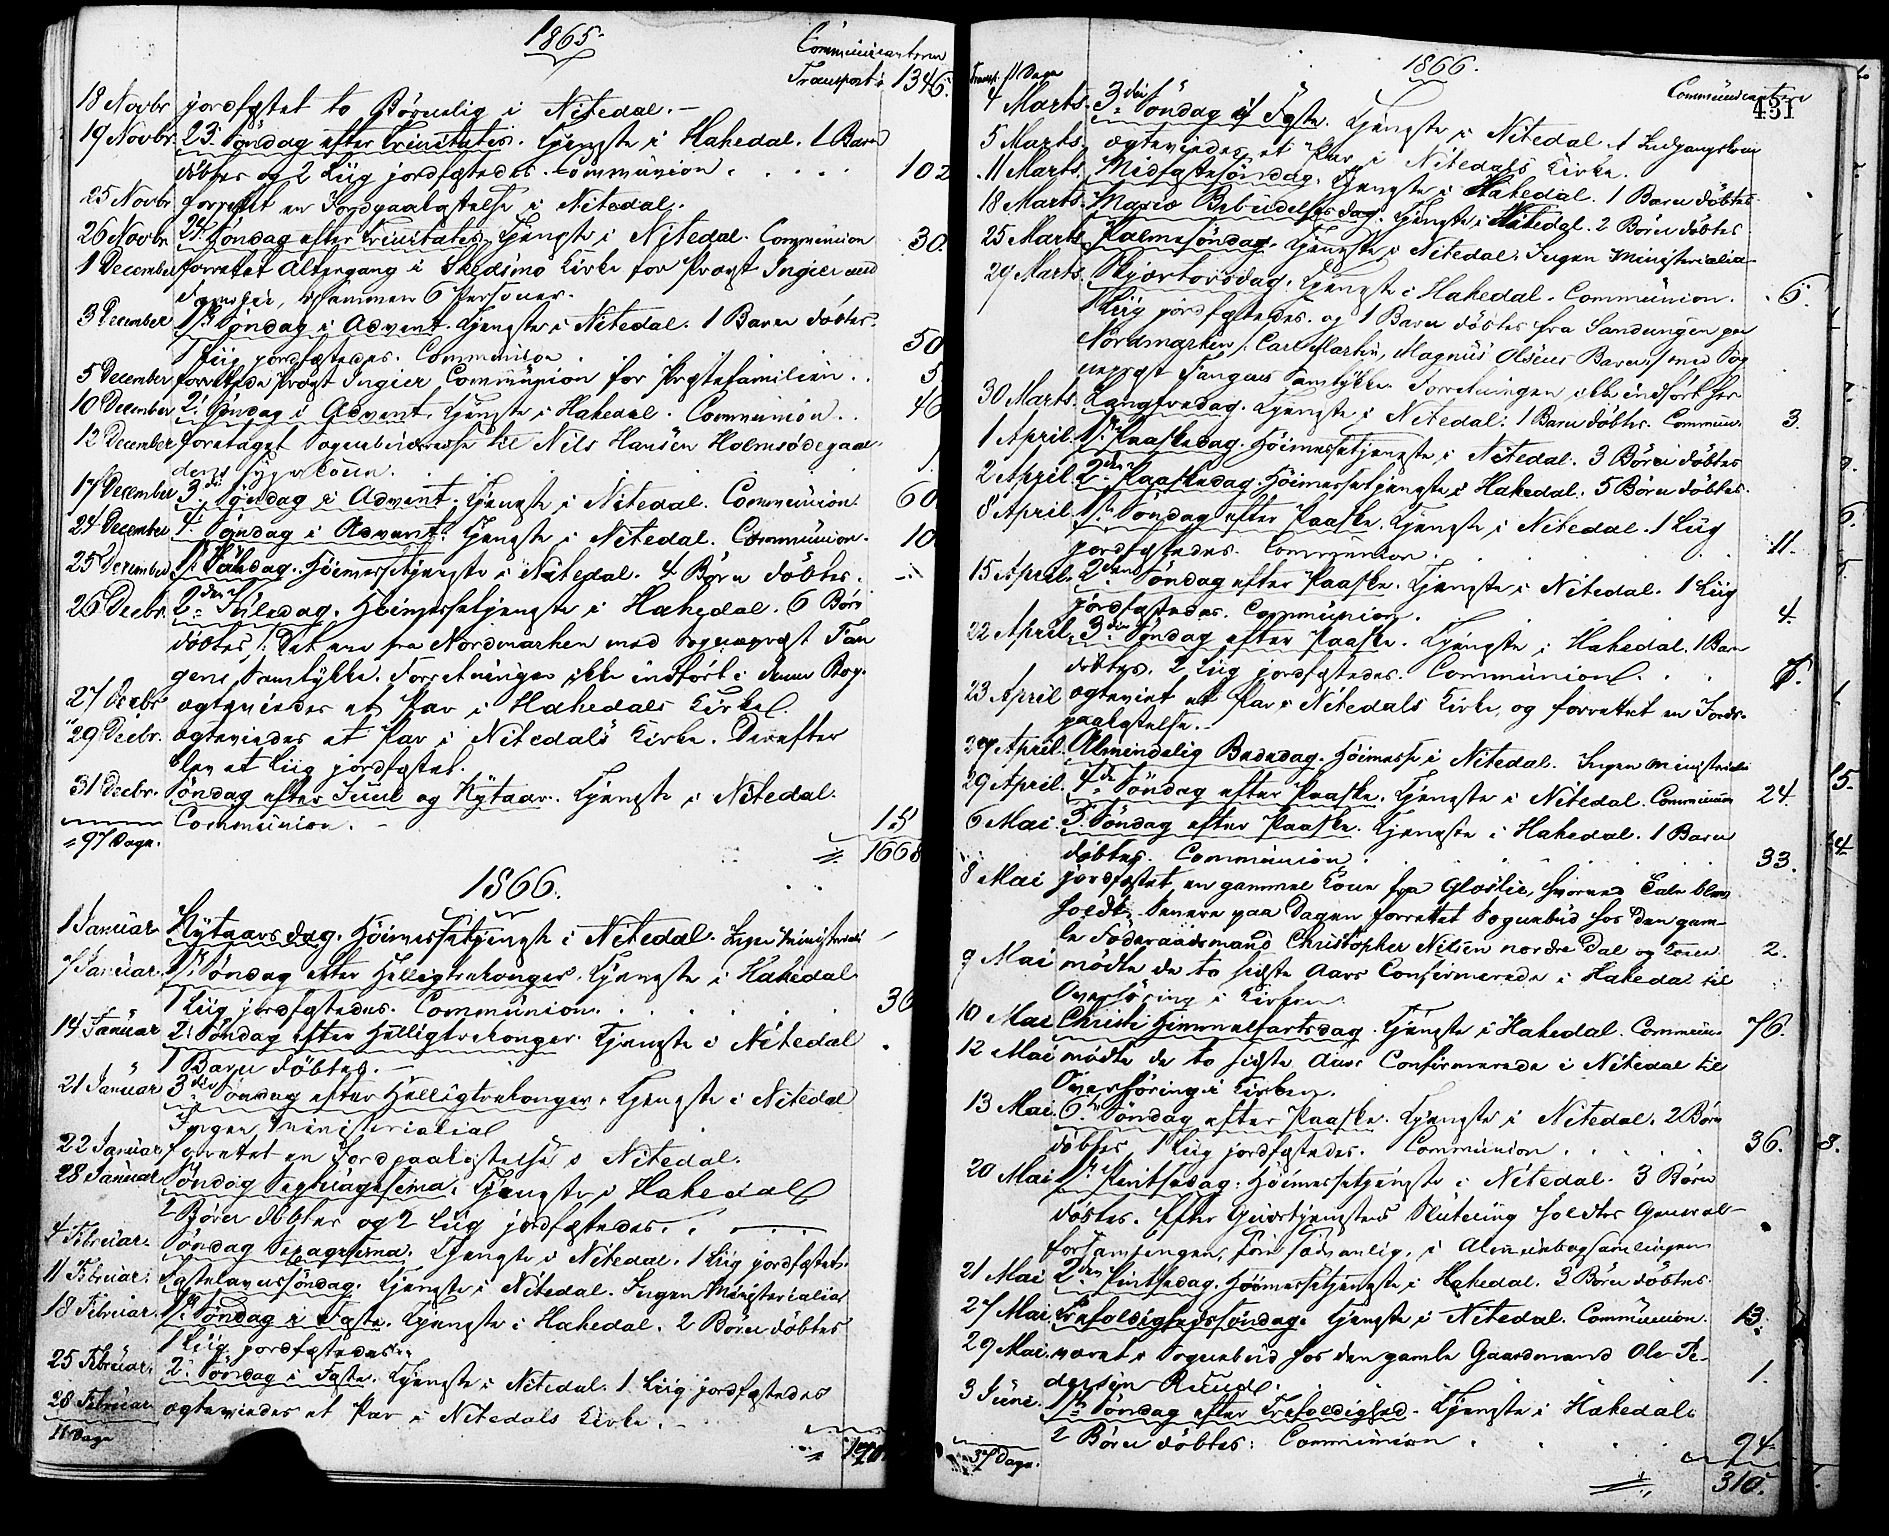 1865.
Communicanterne
Transport: 1346.
18 Novbr jordfæstet to Børnelig i Nitedal. –
19 Novbr. 23. Søndag efter Trinitatis. Tjeneste i Hakedal. 1 Barn
døbtes og 2 Liig jordfæstedes. Communion. 102
25 Novbr. forrettet en Jordpaakastelse i Nitedal.
26 Novbr. 24. Søndag efter Trinitatis. Tjeneste i Nitedal. Communion 30.
1 December forrettet Altergang i Skedsmo Kirke for Provst Ingier med
Familie, tilsammen 6 Personer.
3 December 1ste Søndag i Advent. Tjeneste i Nitedal. 1 Barn døbtes.
1 Liig jordfæstedes. Communion. 50
5 December forrettede Provst Ingier Communion for Præstefamilien. 5
10 December 2. Søndag i Advent. Tjeneste i Hakedal. Communion. 46
12 December foretaget Sognebudsreise til Nils Hansen Holmsødegaar-
dens Sygeleie.
17 December 3die Søndag i Advent. Tjeneste i Nitedal. Communion. 60
24 December 4. Søndag i Advent. Tjeneste i Nitedal. Communion. 10
25 December 1ste Juledag. Høimessetjeneste i Nitedal. 4 Børn døbtes.
26 Decbr. 2den Juledag. Høimessetjeneste i Hakedal. 6 Børn
døbtes, /: Det ene fra Nordmarken med Sognepræst Fan
gens Samtykke. Forretningen ikke indført i denne Bog.
27 Decbr. ægteviedes et Par i Hakedals Kirke.
29 Decbr. ægteviedes et Par i Nitedals Kirke. Derefter
blev et Liig jordfæstet.
31 Decbr. Søndag efter Juul og Nytaar. Tjeneste i Nitedal.
Communion. – 15
= 97 Dage. = 1668
1866.
1 Januar Nytaarsdag. Høimessetjeneste i Nitedal. Ingen Ministerialia
7 Januar. 1ste Søndag efter Helligtrekonger. Tjeneste i Hakedal
1 Liig jordfæstedes. Communion. 30
14 Januar 2. Søndag efter Helligtrekonger. Tjeneste i Nitedal
1 Barn døbtes. –
21 Januar 3die Søndag efter Helligtrekonger. Tjeneste i Nitedal
Ingen Ministerialia
22 Januar forrettet en Jordpaakastelse i Nitedal.
28 Januar Søndag Septuagesima. Tjeneste i Hakedal
2 Børn døbtes og 2 Liig jordfæstedes.
4 Februar. Søndag Sexagesima. Tjeneste i Nitedal. 1 Liig jordfæstet.
11 Februar. Fastelavnssøndag. Tjeneste i Nitedal. Ingen Ministerialia
18 Februar. 1ste Søndag i Faste. Tjeneste i Hakedal. 2 Børn døbtes
1 Liig jordfæstedes.
25 Februar. 2. Søndag i Faste. Tjeneste i Nitedal. 1 Liig jordfæstedes
28 Februar ægteviedes et Par i Nitedals Kirke. –
11 Dage
1866.
Transp. 11 Dage
Communicanterne
431
4 Marts. 3die Søndag i Faste. Tjeneste i Nitedal. 1 Indgangskone
5 Marts. ægteviedes et Par i Nitedals Kirke.
11 Marts. Midfastesøndag. Tjeneste i Hakedal. 1 Barn døbtes.
18 Marts. Mariæ Bebudelsesdag. Tjeneste i Nitedal. 2 Børn døbtes
25 Marts. Palmesøndag. Tjeneste i Nitedal. Ingen Ministerialia
29 Marts. Skjærtorsdag. Tjeneste i Hakedal. Communion. 6.
1 Liig jordfæstedes. og 1 Barn døbtes fra Sandungen paa
Nordmarken /: Carl Martin, Magnus Olsens Barn :/ med Sog
nepræst Fangens Samtykke. Forretningen ikke indført her
30 Marts. Langfredag. Tjeneste i Nitedal. 1 Barn døbtes. Commun. 3.
1 April. 1ste Paaskedag. Høimessetjeneste i Nitedal. 3 Børn døbtes
2 April. 2den Paaskedag. Høimessetjeneste i Hakedal. 5 Børn døbtes.
8 April. 1ste Søndag efter Paaske. Tjeneste i Nitedal. 1 Liig
jordfæstedes. Communion. 11.
15 April. 2den Søndag efter Paaske. Tjeneste i Nitedal. 1 Liig
jordfæstedes. Communion. 4.
22 April. 3die Søndag efter Paaske. Tjeneste i Hakedal. 1 Barn
døbtes. 2 Liig jordfæstedes. Communion.
23 April ægteviet et Par i Nitedals Kirke, og forrettet en Jords-
paakastelse. –
27 April. Almindelig Bededag. Høimesse i Nitedal. Ingen Ministerialia
29 April. 4de Søndag efter Paaske. Tjeneste i Nitedal. Communion 24.
6 Mai. 5. Søndag efter Paaske. Tjeneste i Hakedal. 1 Barn
døbtes. Communion. 33.
8 Mai jordfæstet en gammel Kone fra Gløslie, hvorved Tale blev
holdt. Senere paa Dagen forrettet Sognebud hos den gam-
le Føderaadsmand Christopher Nilsen nordre Dal og Kone 2.
9 Mai mødte de to sidste Aars Confirmerede i Hakedal til
Overhøring i Kirken.
10 Mai Christi Himmelfartsdag. Tjeneste i Hakedal. Commun. 76.
12 Mai mødte de to sidste Aars Confirmerede i Nitedal til
Overhøring i Kirken.
13 Mai. 6te Søndag efter Paaske. Tjeneste i Nitedal. 2 Børn
døbtes 1 Liig jordfæstedes. Communion 36.
20 Mai 1ste Pintsedag. Høimessetjeneste i Nitedal. 3 Børn
døbtes. Efter Gudstjenestens Slutning holdtes General-
forsamlingen, som sædvanlig, i Almuebogsamlingen
21 Mai 2den Pintsedag. Høimessetjeneste i Hakedal. 3 Børn døbtes.
27 Mai Trefoldighedssøndag. Tjeneste i Nitedal. Communion. 13.
29 Mai. været i Sognebud hos den gamle Gaardmand Ole Pe-
dersen Ruud. 1.
3 Juni. 1ste Søndag efter Trefoldighed. Tjeneste i Hakedal.
2 Børn døbtes. Communion 94
37 Dage. = 310.